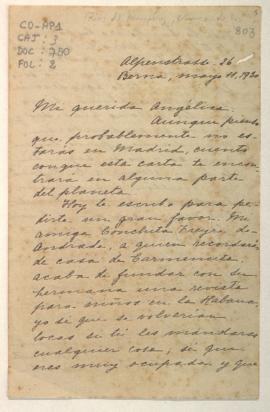 CO-AP1
CAJ: 3
DOC: 780
FOL: 2
803
Alpenstrasse 26
Berna, mayo 11, 1930
Mi querida Angélica:
Aunque pienso
que probablemente no es-
tarás en Madrid, cuento
con que esta carta te encon-
trará en alguna parte
del planeta.
Hoy te escribo para pe-
dirte un gran favor. Mi
amiga Conchita Freyre de
Andrade, a quien recordarás
de casa de
acaba de fundar con su
hermana una revista
para niños en la Habana,
yo sé que se volverían
locas si tú les mandaras
cualquier cosa; sé que
eres muy ocupada y que